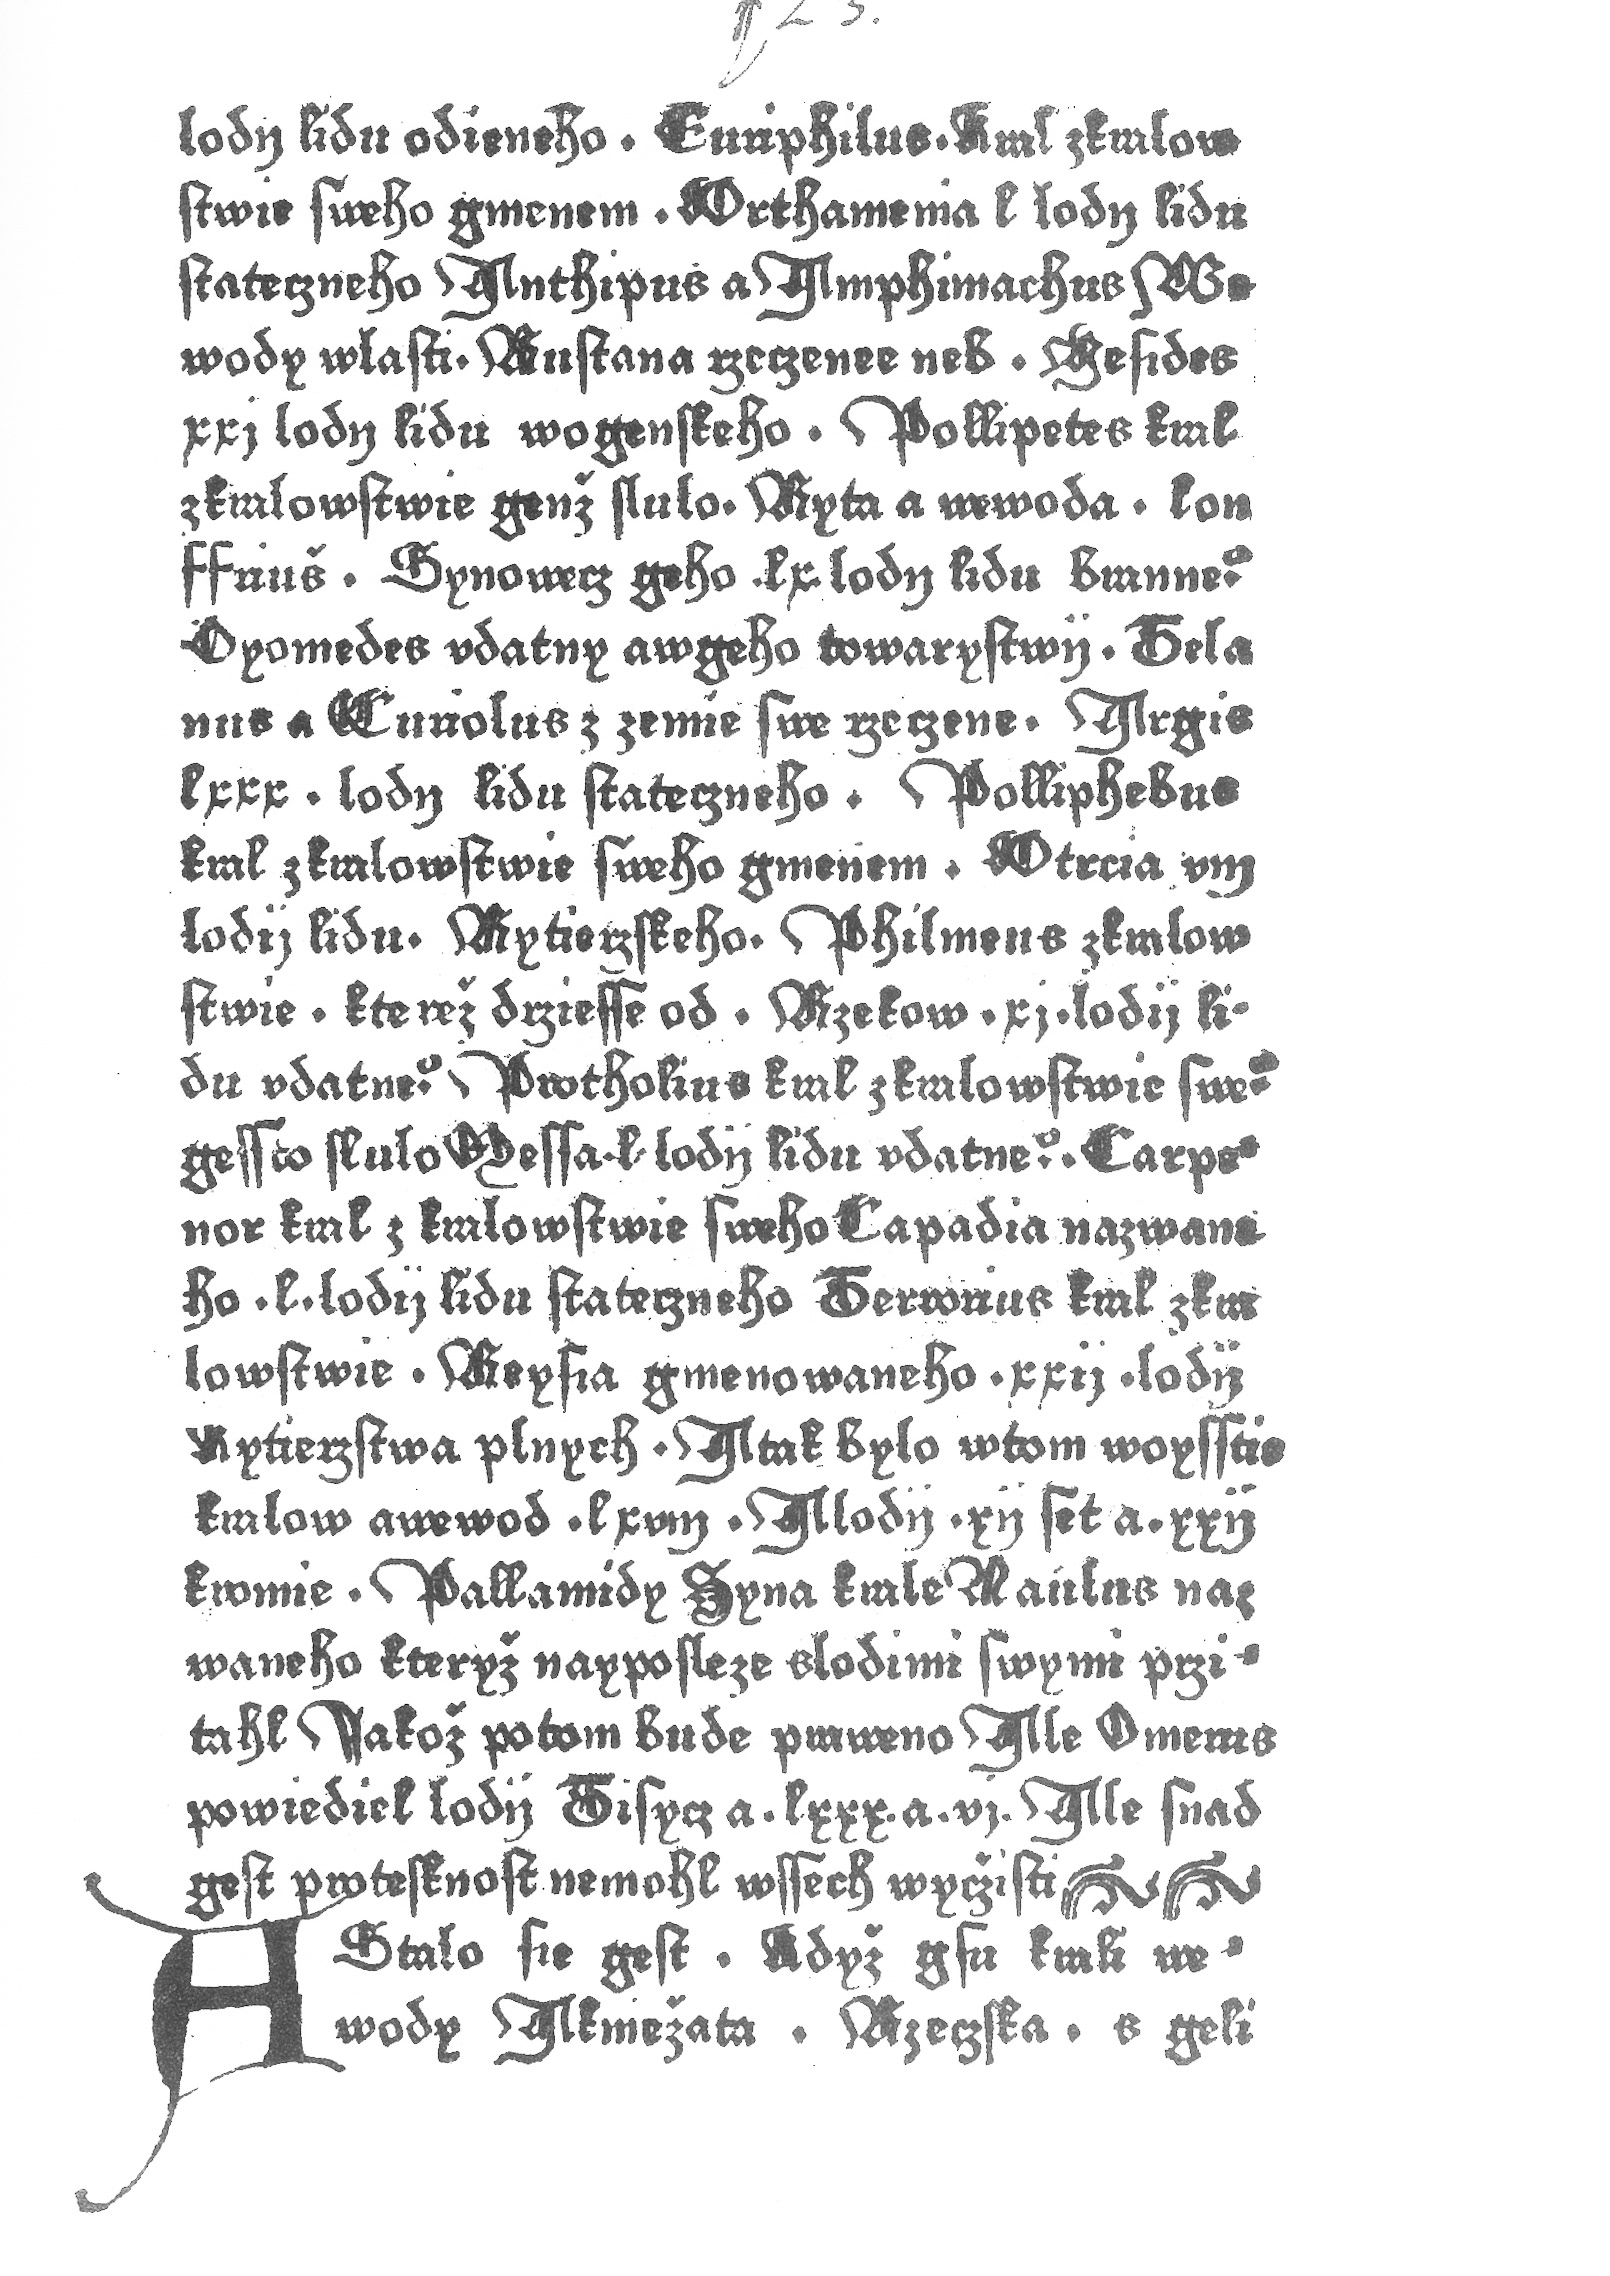 123.
lodij lidu odieneho . Euriphilus . Kral zkralow
stwie sweho gmenem . Orthamenia l lodij lidu
stateczneho Anthipus a Amphimachus We
wody wlasti . Rustana rzeczenee neb . Hesides
xxj lodij lidu wogenskeho . Pollipetes kral
zkralowstwie genž slulo . Ryta a wewoda . lon
ffriuš . Synowecz geho . lx . lodij lidu branne°
Dyomedes vdatny awgeho towarystwij . Tela
nus a Euriolus z zemie swe rzeczene . Argis
lxxx . lodij lidu stateczneho . Polliphebus
kral zkralowstwie sweho gmenem . Otrcia vnj
lodij lidu . Rytierzskeho . Philmeus zkralow
stwie . kterež drziesse od . Rzekow . xj . lodij li-
du vdatne° Protholius kral zkralowstwie swe°
gessto slulo Messa . l . lodij lidu vdatne° . Carpe-
nor kral z kralowstwie sweho Capadia nazwane
ho . l . lodij lidu stateczneho Terwrius kral zkra
lowstwie . Reysia gmenowaneho . xxij . lodij
Rytierzstwa plnych . Atak bylo wtom woysstie
kralow awewod . lxvnj . Alodij . xij set a . xxij
kromie . Pallamidy Syna krale Naulus naz
waneho kteryž nayposleze slodimi swymi przi-
tahl Jakož potom bude praweno Ale Omerus
powiediel lodij Tisycz a . lxxx . a . vj . Ale snad
gest protesknost nemohl wssech wyczisti
A Stalo sie gest . Když gsu krali we-
wody Akniežata . Rzeczska . s geli